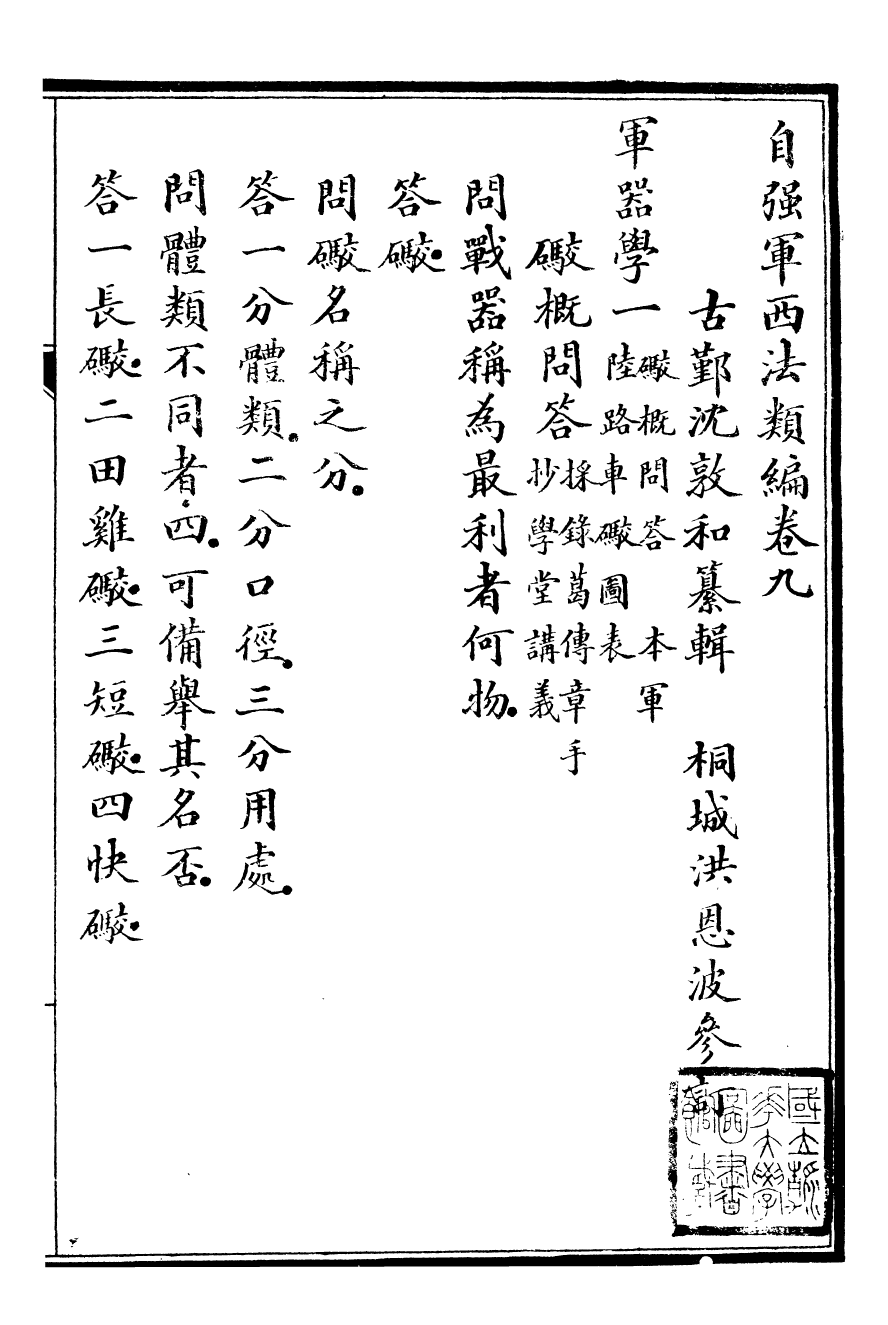 自强軍西法類編卷九
古鄞沈敦和纂輯 桐城洪恩波參訂
軍器學一 礮概問答 本軍
陸路車礮圖表
礮概問答 採錄葛傳章手
抄學堂講義
問戰器稱為最利者何物。
答礮。
問礮名稱之分。
答一分體類。二分口徑。三分用處。
問體類不同者四。可備舉其名否。
答一長礮。二田雞礮。三短礮。四快礮
國立
大學
圖書